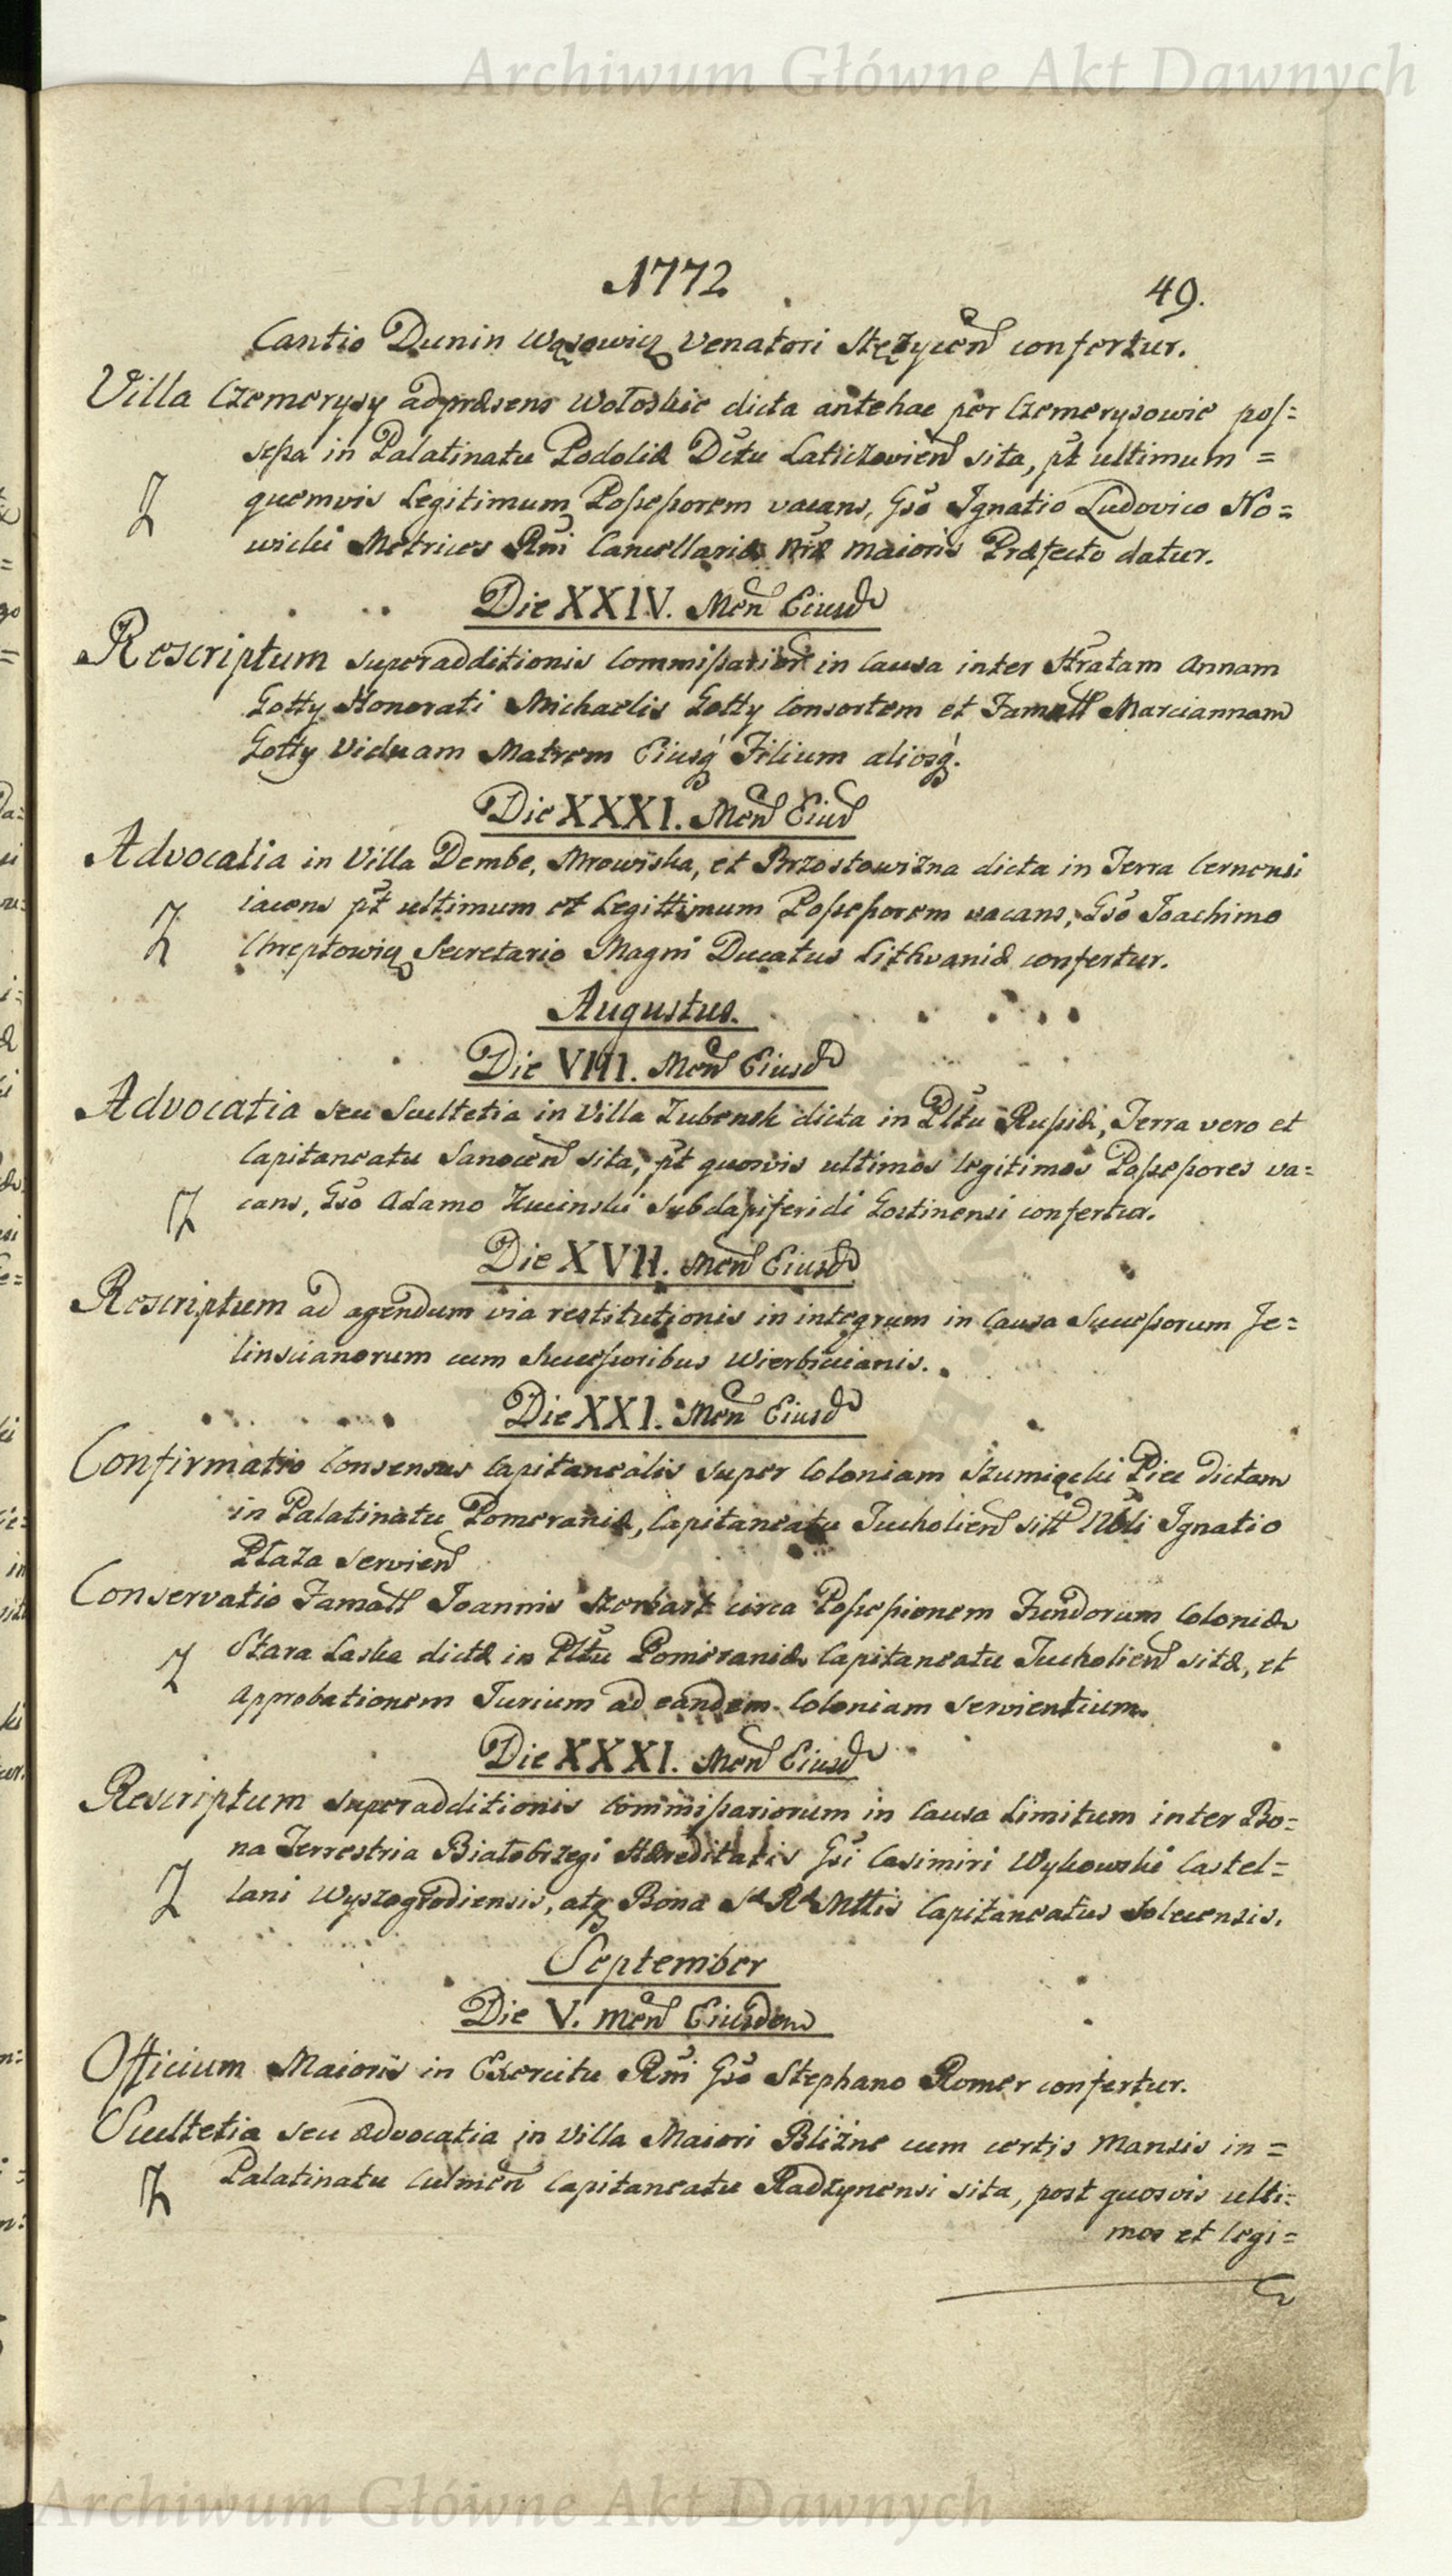 Archiwum Główne Akt Dawnych
1772
49.
Cantio Dunin Wąsowicz Venatori Stężycen confertur.
Villa Czemerysy adpræsens Wołoskie dicta antehac per Czemerysowie pos=
sessa in Palatinatu Podoliæ Dctu Laticzovien sita, pt ultimum =
quemvis Legitimum Possessorem vacans, Gso Ignatio Ludovico No=
wicki Metrices Rni Cancellariæ Nræ maioris Præfecto datur.
Die XXIV. Men Eiusd
Rescriptum superadditionis Commissarior in Causa inter Hratam Annam
Gotty Honorati Michaelis Gotty Consortem et Famatt Marciannam
Gotty Viduam Matrem Eiusq Filium aliosq.
Die XXXI. Men Eiusd
Advocatia in Villa Dembe, Mrowiska, et Brzostowizna dicta in Terra Cernensi
iacens pt ultimum et Legittimum Possessorem vacans, Gso Joachimo
Chreptowicz Secretario Magni Ducatus Lithvaniæ confertur.
Augustus.
Die VIII. Men Eiusd
Advocatia seu Scultetia in Villa Zubensk dicta in Pltu Russiæ, Terra vero et
Capitaneatu Sanocen sita, pt quosvis ultimos legitimos Possessores va=
cans, Gso Adamo Hucinski Subdapiferidi Gostinensi confertur.
Die XVII. Men Eiusd
Rescriptum ad agendum via restitutionis in integrum in Causa Successorum Je=
linscianorum cum Successoribus Wierbicianis.
Die XXI. Men Eiusd
Confirmatio Consensus Capitanealis super Coloniam Szumiącki Piec dictam
in Palatinatu Pomeraniæ, Capitaneatu Tucholien sitt Nbli Ignatio
Plaza servien
Conservatio Famatt Joannis Storbart circa Possessionem Fundorum Coloniæ
Stara Laska dictæ in Pltu Pomeraniæ Capitaneatu Tucholien sitæ, et
Approbationem Jurium ad eandem Coloniam servientium.
Die XXXI. Men Eiusd
Rescriptum superadditionis Commissariorum in Causa Limitum inter Bo=
na Terrestria Białobrzegi Hæreditatis Gsi Casimiri Wykowski Castel=
lani Wyszogrodiensis, atq Bona S R Mttis Capitaneatus Solecensis.
September
Die V. men Eiusdem
Officium Maioris in Exercitu Rni Gso Stephano Romer confertur.
Scultetia seu advocatia in Villa Maiori Blizne cum certis Mansis in =
Palatinatu Culmen Capitaneatu Radzynensi sita, post quosvis ulti=
mos et legi=
Archiwum Główne Akt Dawnych